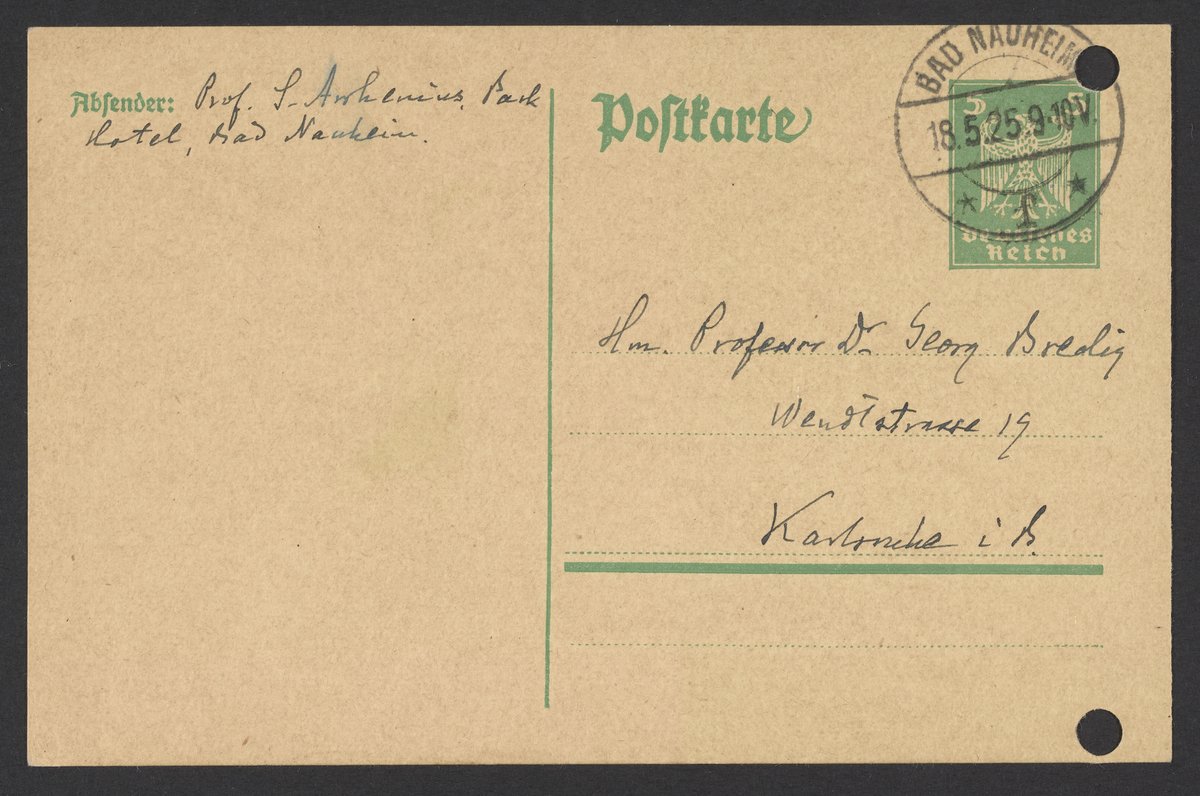 Absender: Prof. S. Arrhenius, Park
Hotel, Bad Nauheim.
Postkarte
BAD NAUHEIM
18.5.25.9-10V.
* f *
5 5
Deutsches
Reich
Hrn. Professor Dr Georg Bredig
Wendtstrasse 19
Karlsruhe i B.